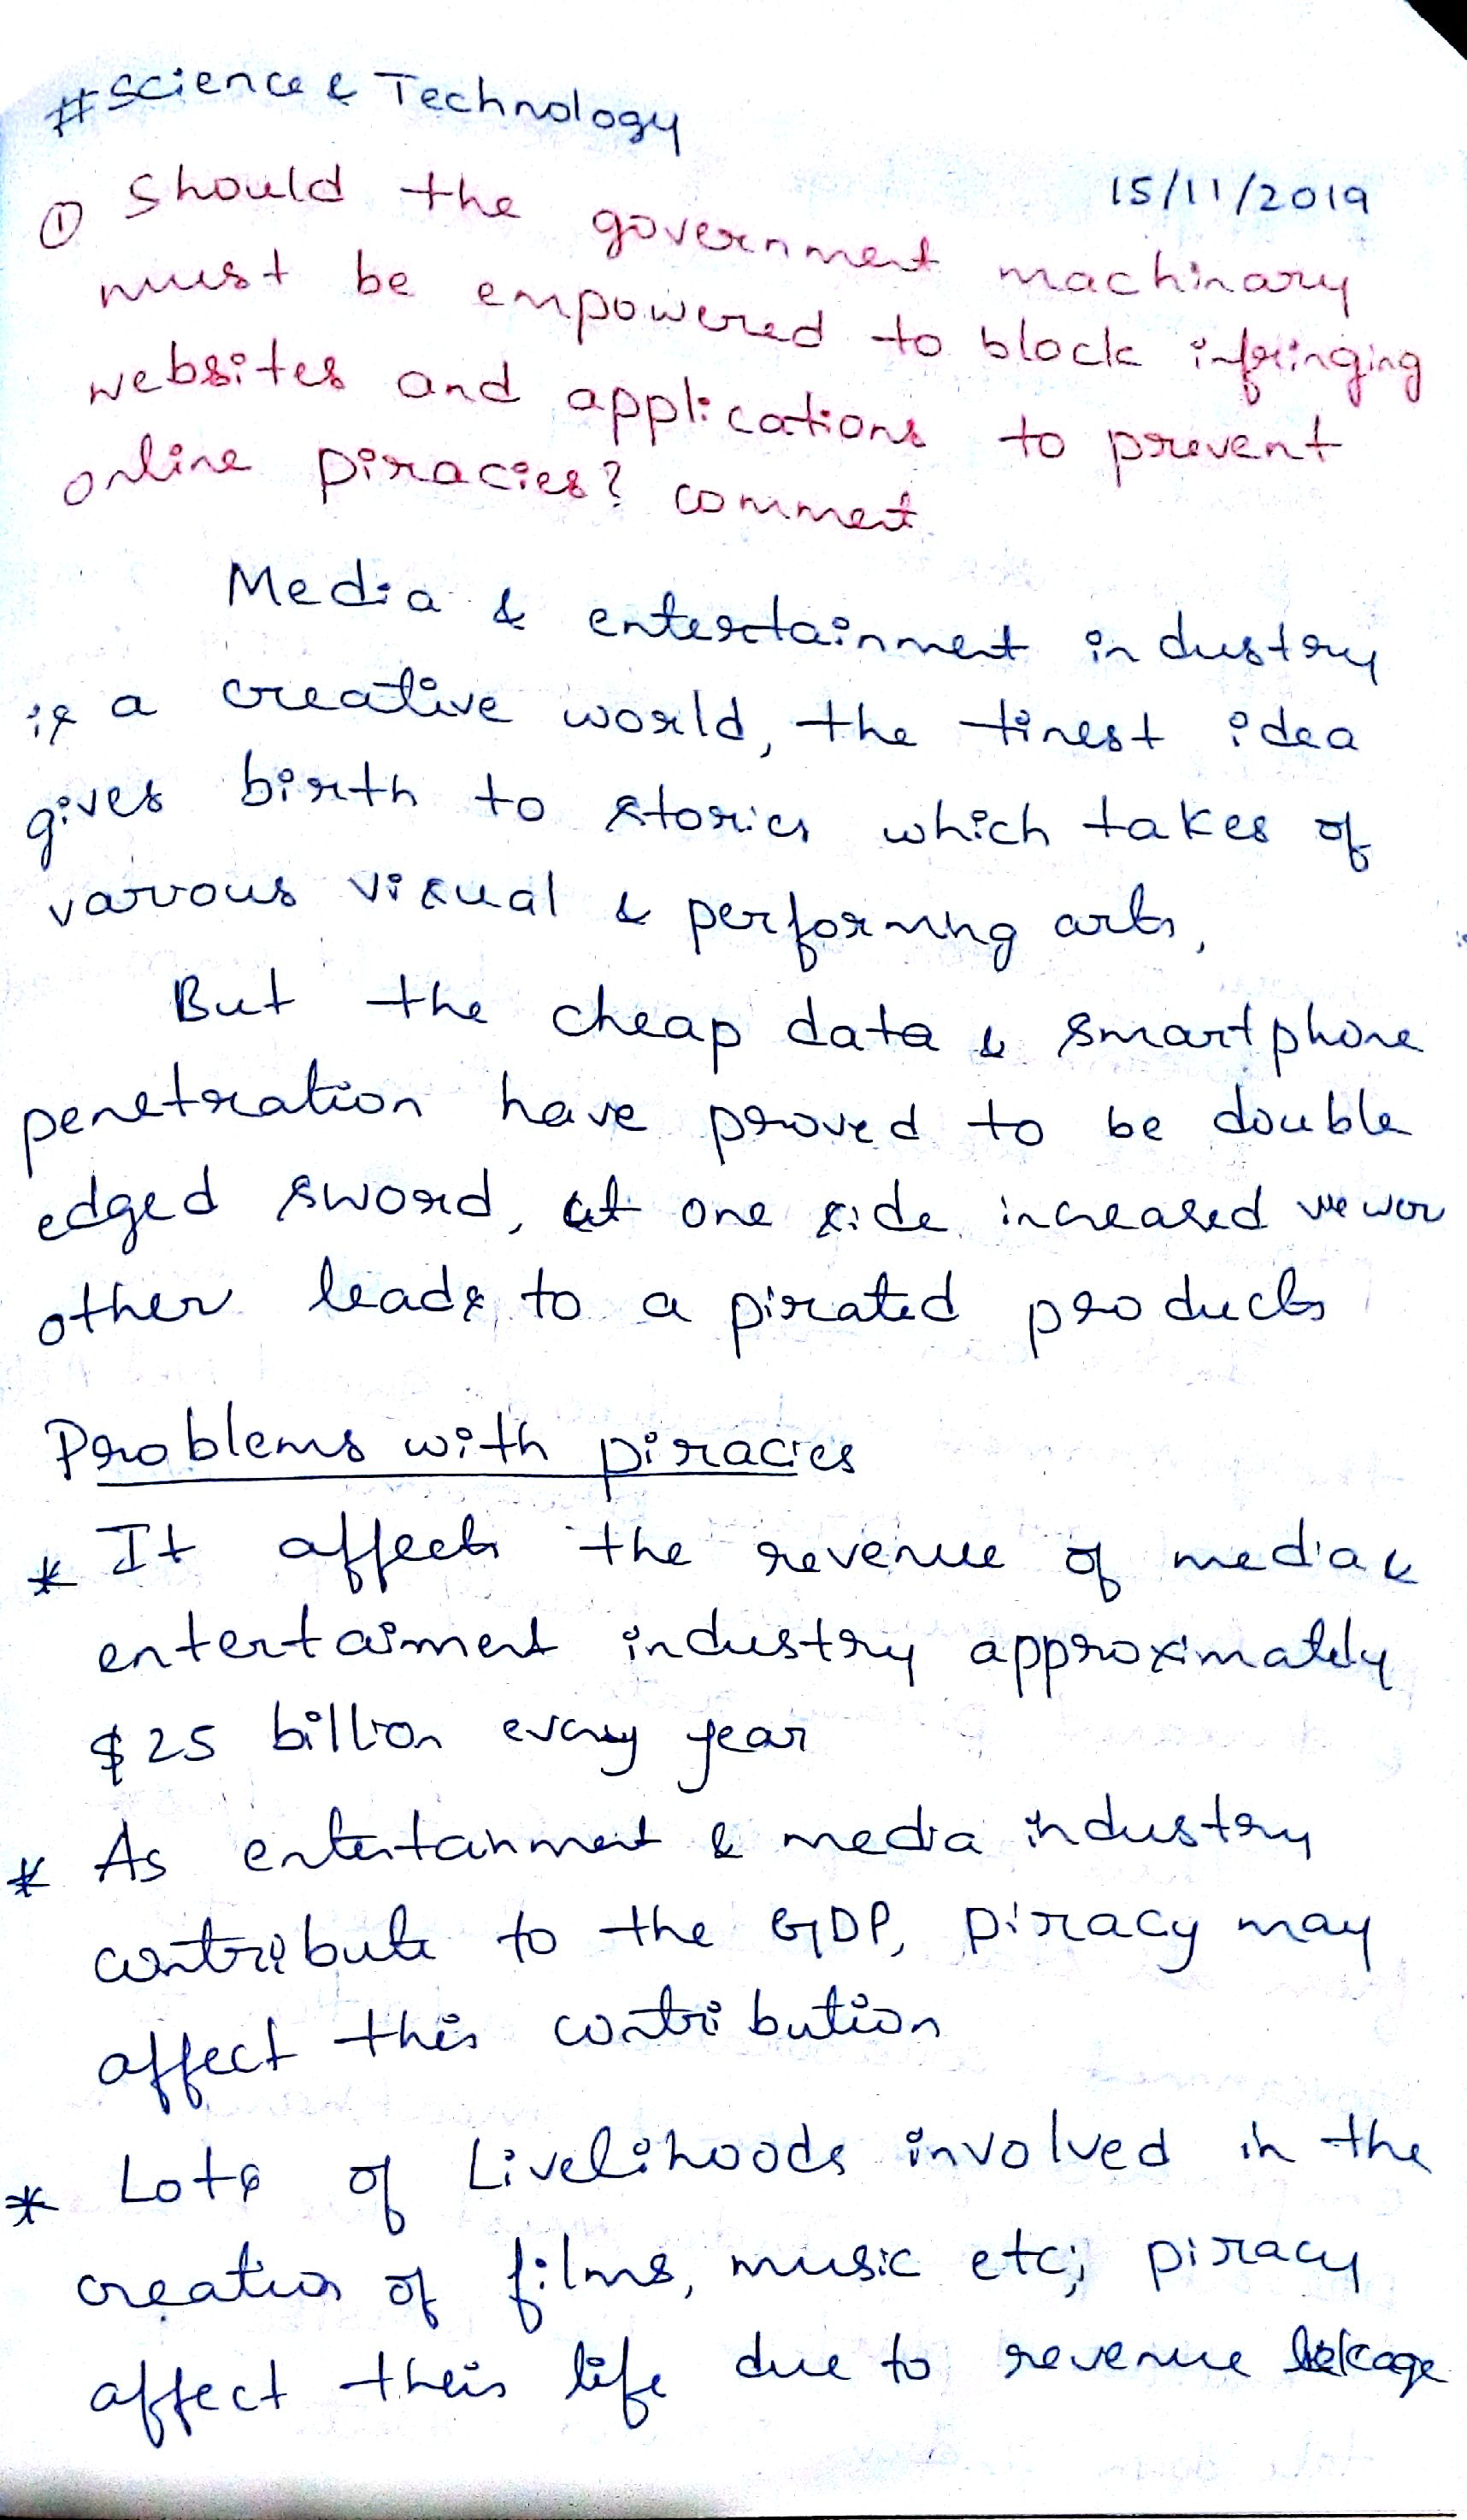 #Science & Technology
15/11/2019
① Should the government machinary
must be empowered to block infringing
websites and applications to prevent
online piracies? comment
Media & entertainment industry
is a creative world, the tinest idea
gives birth to stories which takes of
varrous visual & performing arts,
But the cheap data & smartphone
penetration have proved to be double
edged sword, at one side increased viewer
other leads to a pirated products
Problems with piracies
* It affects the revenue of media &
entertaiment industry approximately
$25 billion every year
* As entertainment & media industry
contribute to the GDP, piracy may
affect this contribution
* Lots of Livelihoods involved in the
creation of films, music etc; piracy
affect their life due to revenue leakage